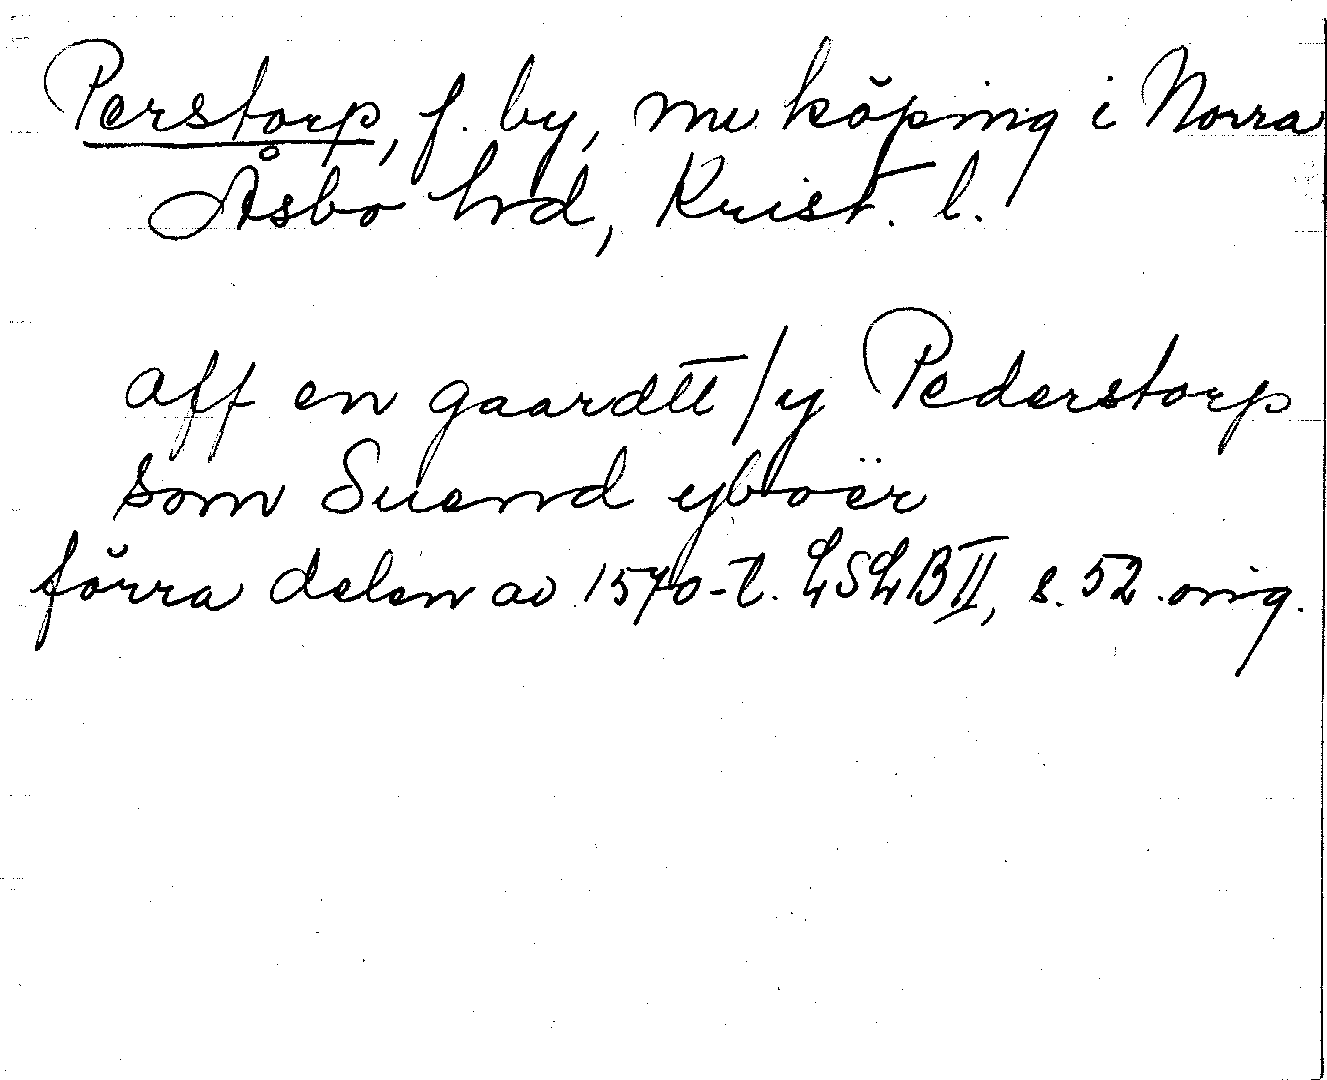 Perstorp, f. by, nu köping i Norra
Åsbo hrd, Krist. l.
aff en gaardtt /y Pederstorp
som Suend yboër
förra delen av 1570-t. LSLB II, s. 52. orig.